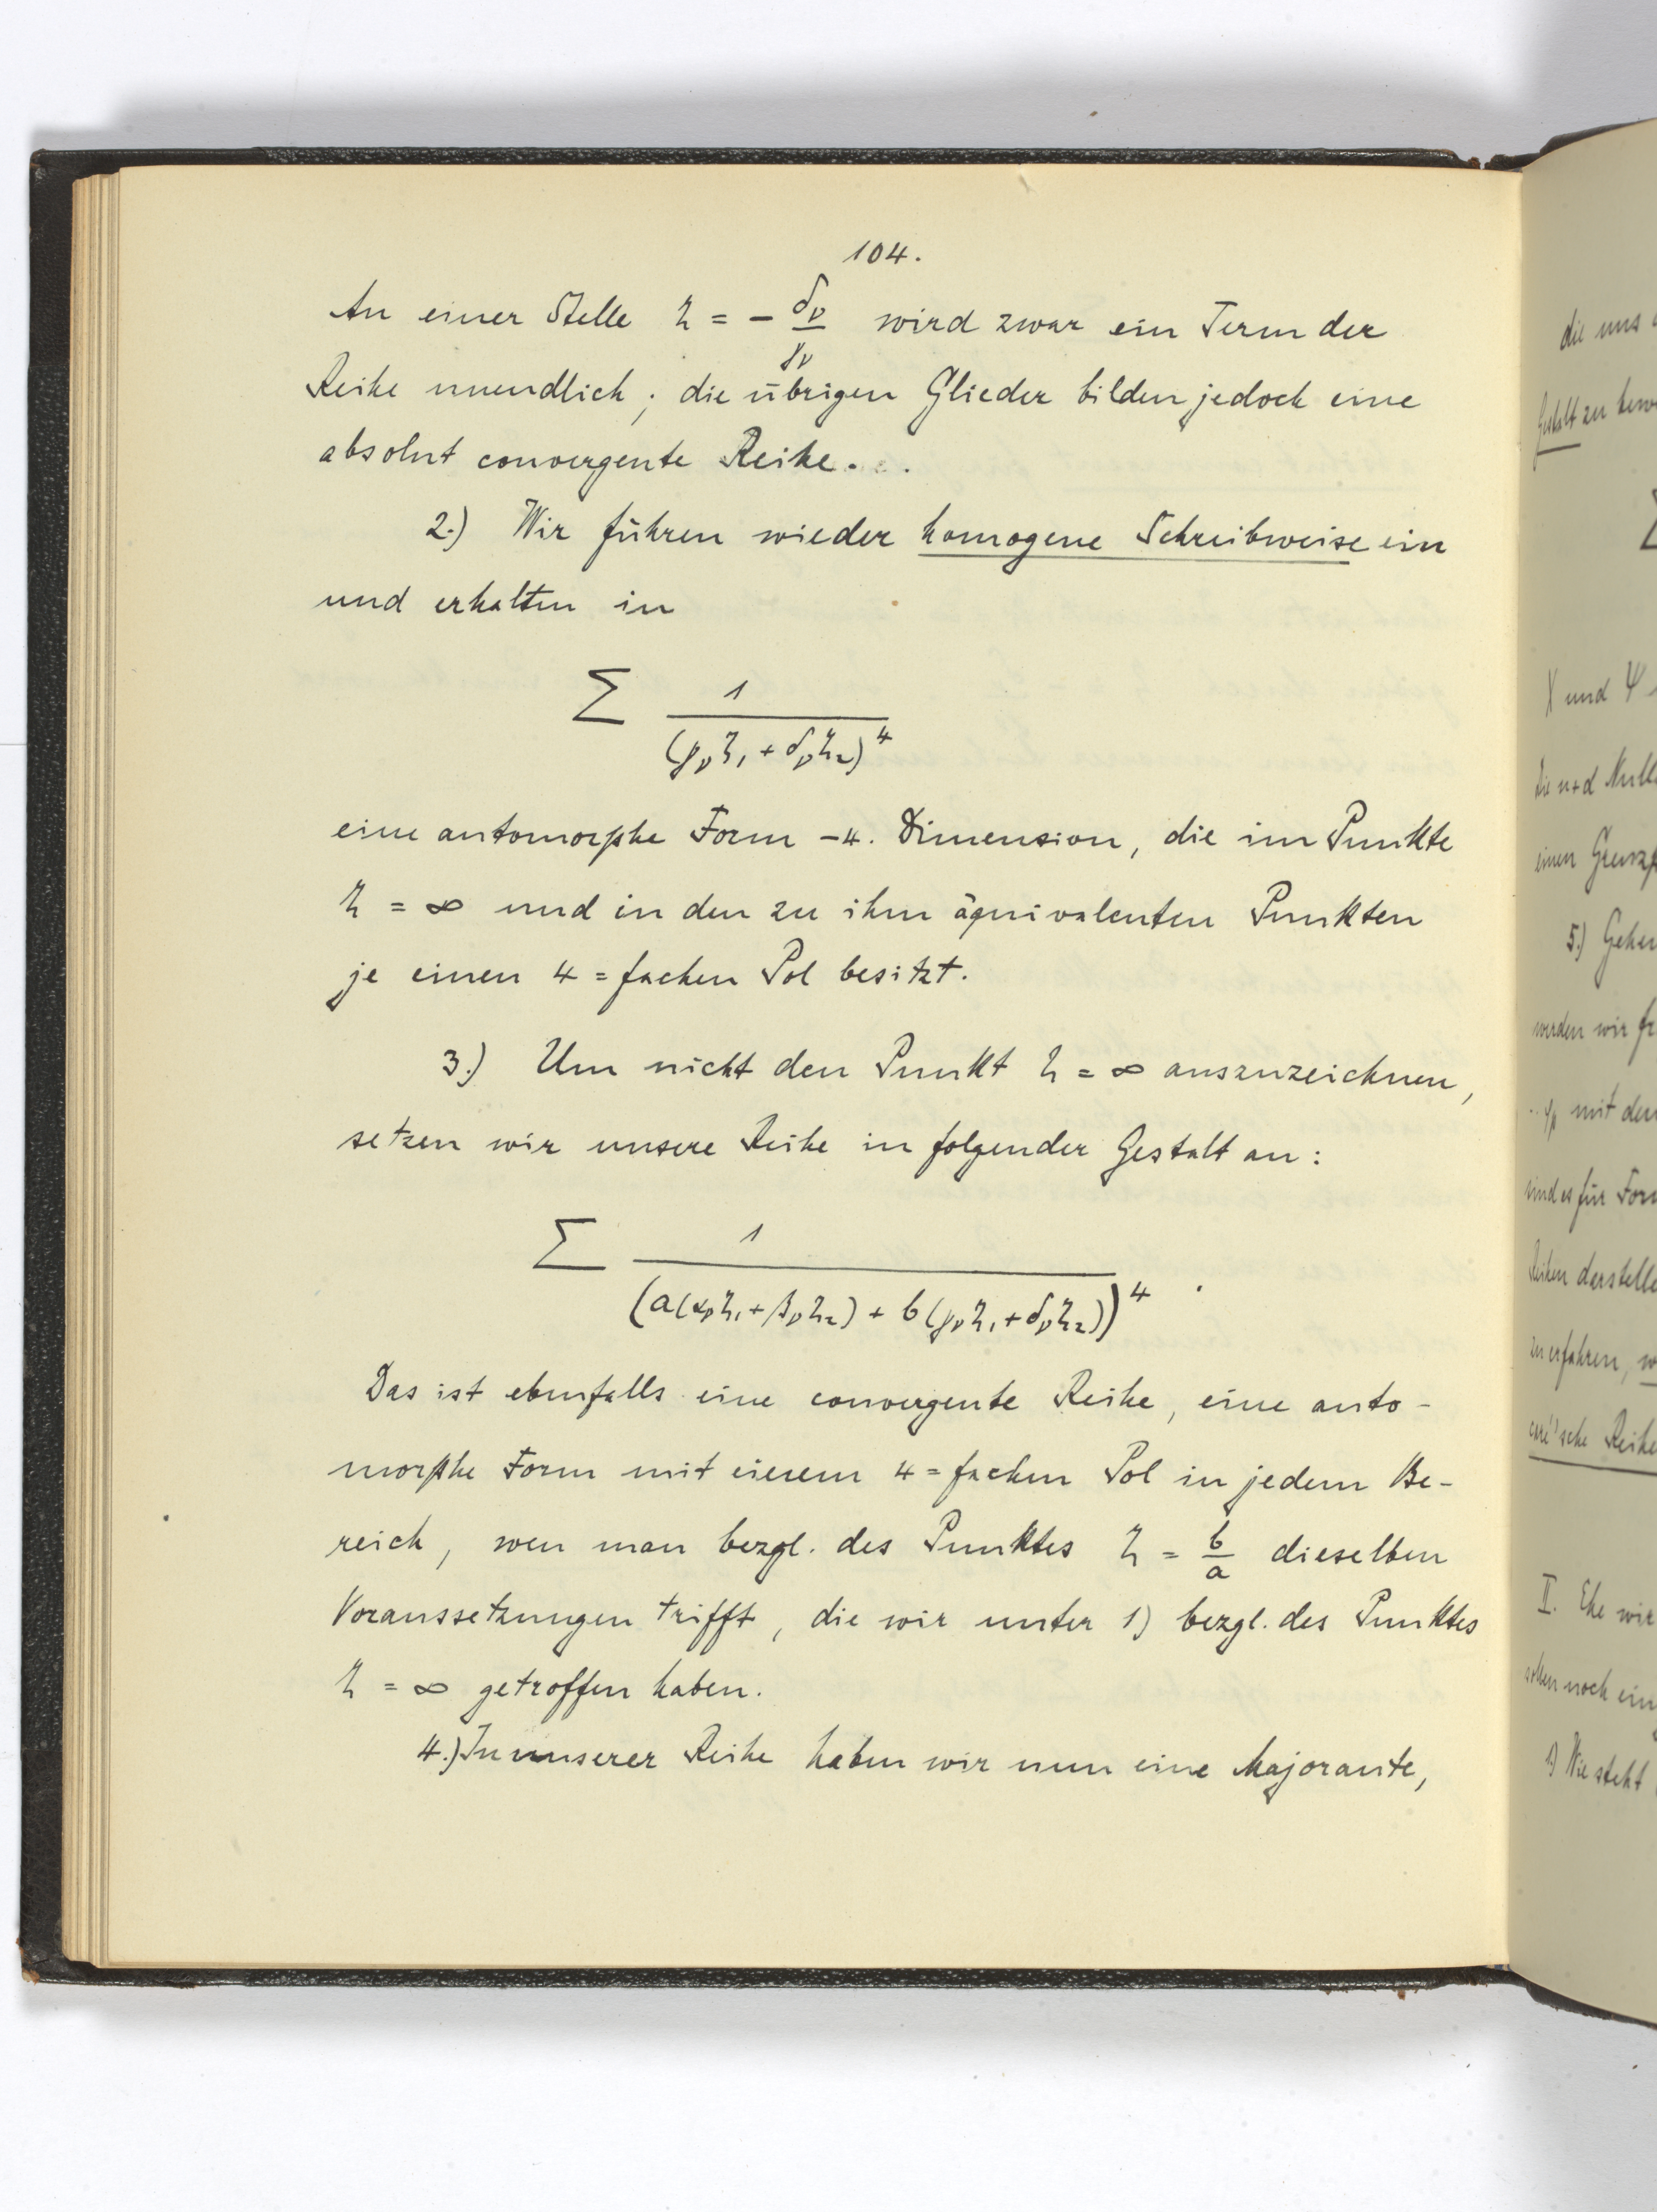 104.
An einer Stelle ζ = − δν/γν wird zwar ein Term der
Reihe unendlich; die übrigen Glieder bilden jedoch eine
absolut convergente Reihe.
2.) Wir führen wieder homogene Schreibweise ein
und erhalten in
∑ 1/(γν ζ₁ + δν ζ₂)⁴
eine automorphe Form −4. Dimension, die im Punkte
ζ = ∞ und in den zu ihm äquivalenten Punkten
je einen 4=fachen Pol besitzt.
3.) Um nicht den Punkt ζ = ∞ auszuzeichnen,
setzen wir unsere Reihe in folgender Gestalt an:
∑ 1/(a(αν ζ₁ + βν ζ₂) + b(γν ζ₁ + δν ζ₂))⁴ .
Das ist ebenfalls eine convergente Reihe, eine auto-
morphe Form mit einem 4=fachen Pol in jedem Be-
reich, wen man bezgl. des Punktes ζ = b/a dieselben
Voraussetzungen trifft, die wir unter 1) bezgl. des Punktes
ζ = ∞ getroffen haben.
4.) In unserer Reihe haben wir nun eine Majorante,
die uns
Gestalt zu
X und Ψ
Die n+d
einen
5.) Gehen
werden wir
mit den
sind es für
Reihen
zu erfahren,
'sche Reihe
II. Ehe wir
noch ein
1) Wie steht